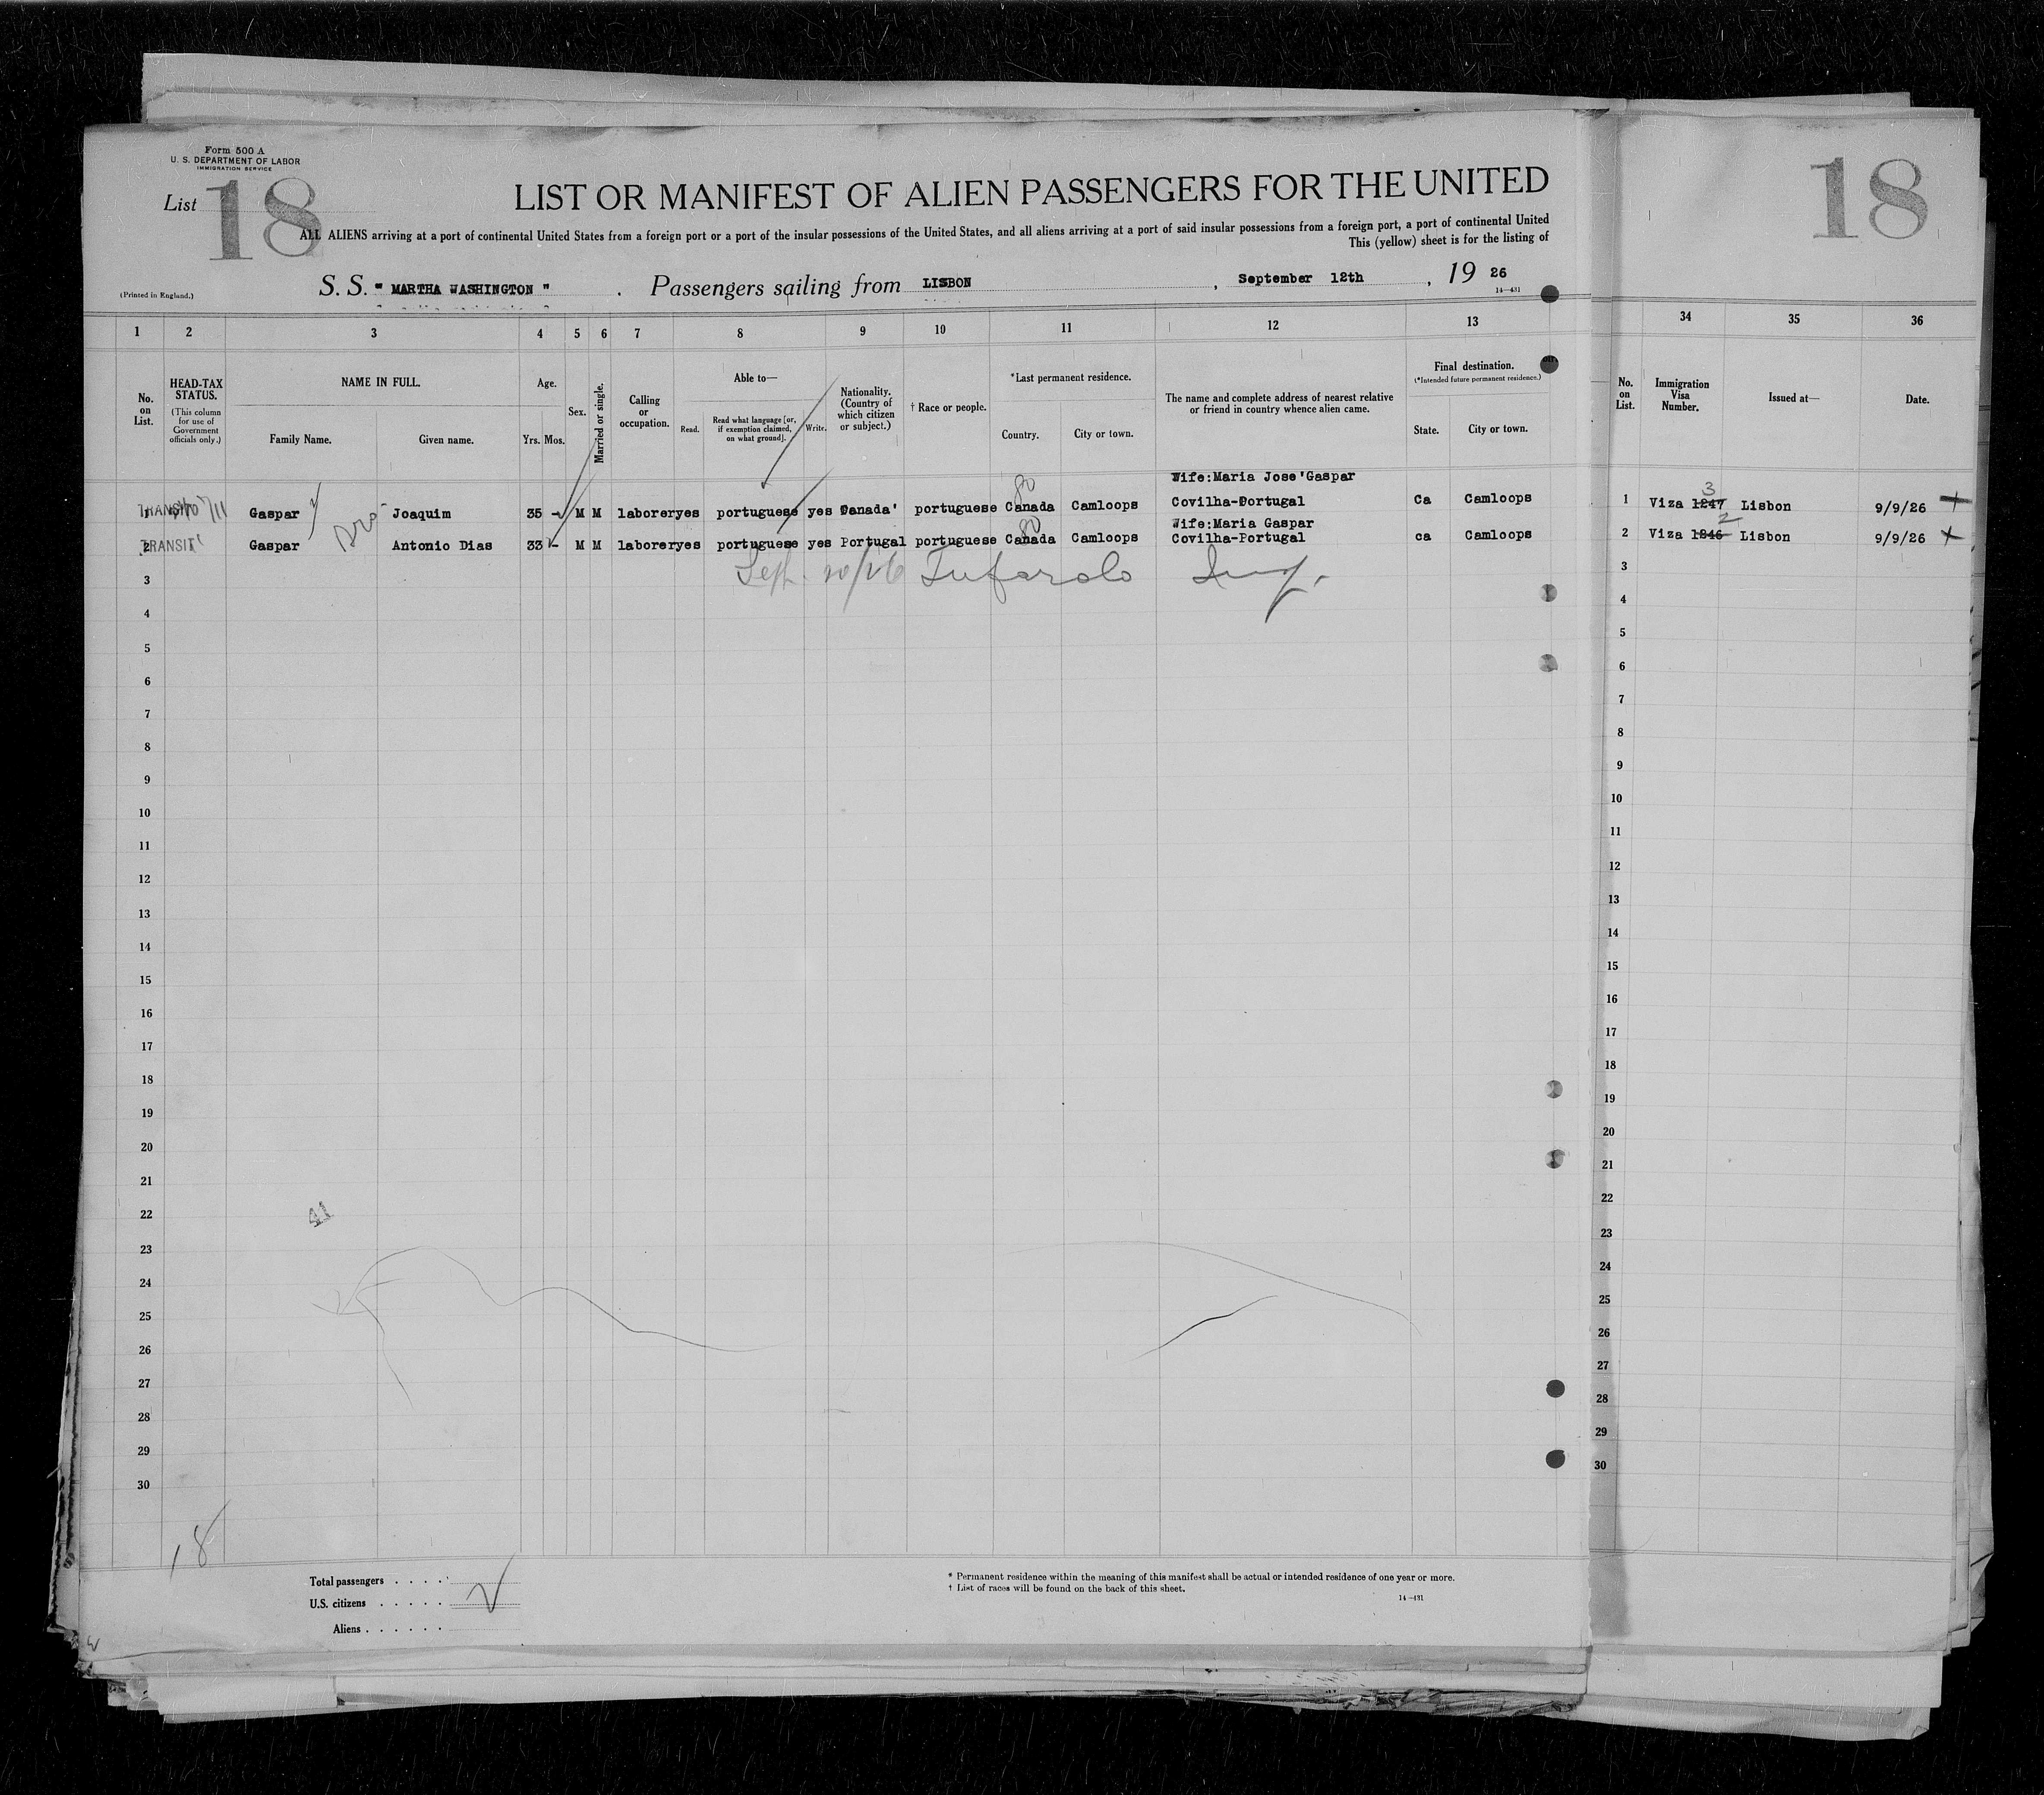 Form 500 A
U. S. DEPARTMENT OF LABOR
IMMIGRATION SERVICE
List 18
LIST OR MANIFEST OF ALIEN PASSENGERS FOR THE UNITED
18
ALL ALIENS arriving at a port of continental United States from a foreign port or a port of the insular possessions of the United States, and all aliens arriving at a port of said insular possessions from a foreign port, a port of continental United
This (yellow) sheet is for the listing of
(Printed in England.)
S. S. " MARTHA WASHINGTON " . Passengers sailing from LISBON , September 12th , 19 26
14—431
1 2 3 4 5 6 7 8 9 10 11 12 13 34 35 36
No. on List.
HEAD-TAX STATUS.
(This column for use of Government officials only.)
NAME IN FULL.
Family Name. Given name.
Age.
Yrs. Mos.
Sex.
Married or single.
Calling or occupation.
Able to—
Read. Read what language [or, if exemption claimed, on what ground]. Write.
Nationality. (Country of which citizen or subject.)
† Race or people.
*Last permanent residence.
Country. City or town.
The name and complete address of nearest relative or friend in country whence alien came.
Final destination.
(*Intended future permanent residence.)
State. City or town.
No. on List.
Immigration Visa Number.
Issued at—
Date.
Wife:Maria Jose'Gaspar
1 TRANSIT Gaspar Joaquim 35 - M M laborer yes portuguese yes Canada' portuguese Canada Camloops Covilha-Portugal Ca Camloops 1 Viza 1247 3 Lisbon 9/9/26
Wife:Maria Gaspar
2 TRANSIT Gaspar Antonio Dias 33 - M M laborer yes portuguese yes Portugal portuguese Canada Camloops Covilha-Portugal ca Camloops 2 Viza 1246 2 Lisbon 9/9/26
80
80
3 Sept. 20/26 Tufarolo Insp. 3
4 4
5 5
6 6
7 7
8 8
9 9
10 10
11 11
12 12
13 13
14 14
15 15
16 16
17 17
18 18
19 19
20 20
21 21
22 41 22
23 23
24 24
25 25
26 26
27 27
28 28
29 29
30 30
18
Total passengers . . . .
U.S. citizens . . . . .
Aliens . . . . . .
* Permanent residence within the meaning of this manifest shall be actual or intended residence of one year or more.
† List of races will be found on the back of this sheet.
14—431